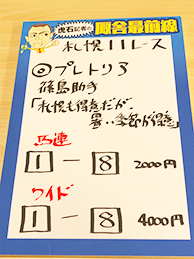 虎石記者の厩舎最前線
札幌11レース
◎プレトリア
篠島助手
「札幌も得意だが、
暑い季節が得意」
馬連
1-8 2000円
ワイド
1-8 4000円